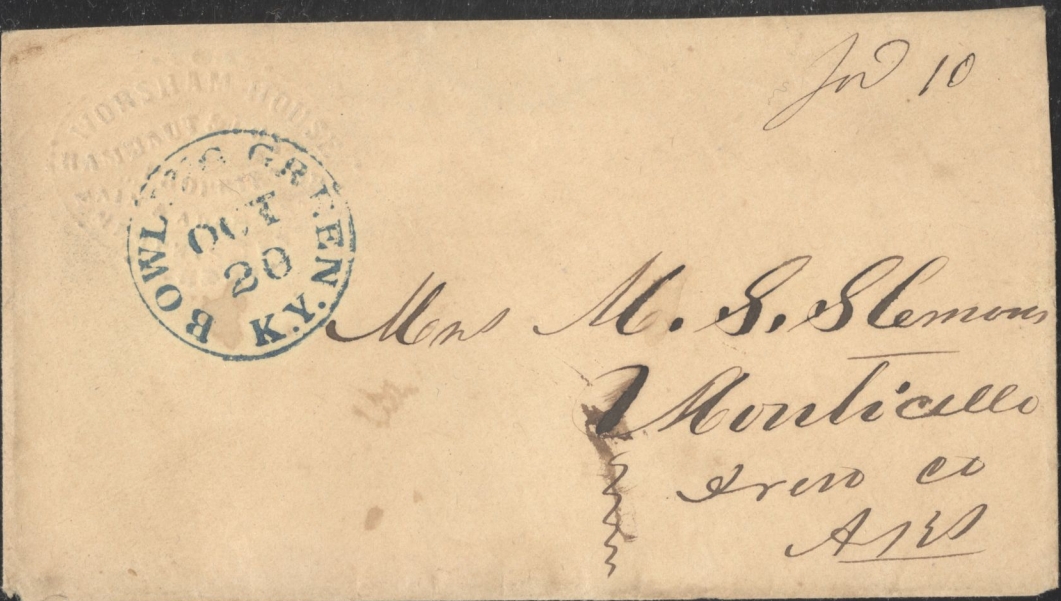 WORSHAM HOUSE
BOWLING GREEN
OCT
20
K.Y.
10
Mrs M. S. Slemons
Monticello
Drew co
ARK